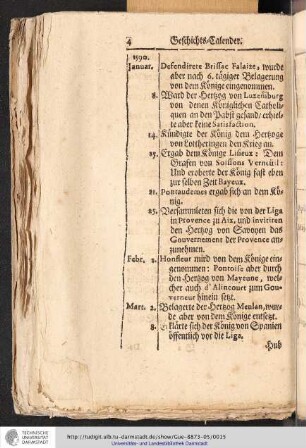 4 Geschichts-Calender.
1590.
Januar. Defendirete Brissac Falaize, wurde
aber nach 6. tägiger Belagerung
von dem Könige eingenommen.
8. Ward der Hertzog von Luxenburg
von denen Königlichen Catholi-
quen an den Pabst gesand / erhiel-
te aber keine Satisfaction.
14. Kündigte der König dem Hertzoge
von Lotheringen den Krieg an.
15. Ergab dem Könige Lisieux: Dem
Grafen von Soissons Verneuil:
Und eroberte der König fast eben
zur selben Zeit Bayeux.
21. Pontaudemes ergab sich an dem Kö-
nig.
25. Versammleten sich die von der Liga
in Provence zu Aix, und invitiren
den Hertzog von Savoyen das
Gouvernement der Provence an-
zunehmen.
Febr. 2. Honfleur wird von dem Könige ein-
genommen: Pontoise aber durch
den Hertzog von Mayenne, wel-
cher auch d'Alincour zum Gou-
verneur hinein setzt.
Mart. 2. Belagerte der Hertzog Meulan, wur-
de aber von dem Könige entsetzt.
8. Erklärte sich der König von Spanien
öffentlich vor die Liga.
Hub
TECHNISCHE
UNIVERSITÄT
DARMSTADT
http://tudigit.ulb.tu-darmstadt.de/show/Gue-8873-05/0015
Universitäts- und Landesbibliothek Darmstadt